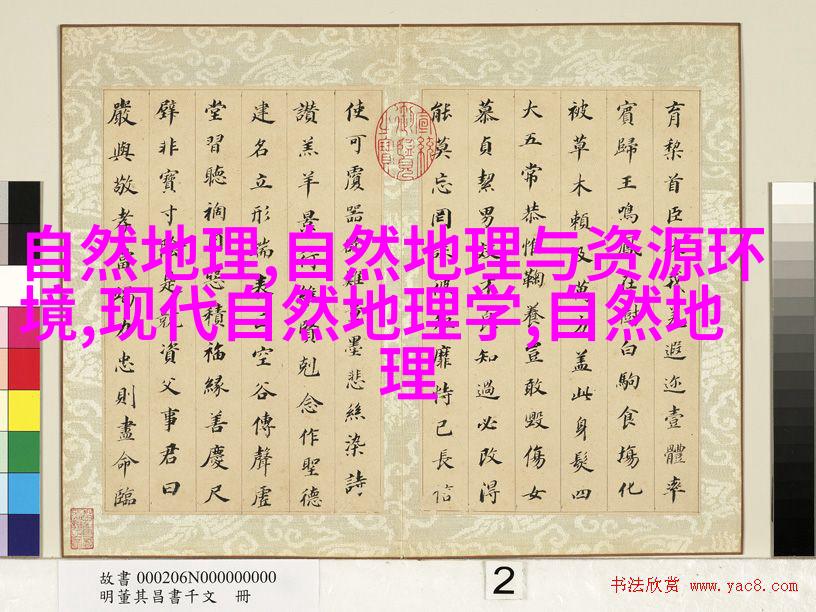 自然地理,自然地理与资源环
境,现代自然地理学,自然地
理
育黎首臣戎羌遐迩壹體率
賓歸王鳴鳳在樹白駒食場化
被草木賴及萬方蓋此身髮四
大五常恭惟鞠養豈敢毀傷女
慕貞絜男效才良知過必改得
能莫忘罔談彼短靡恃己長信
使可覆器欲難量墨悲絲染詩
讚羔羊景行維賢剋念作聖德
建名立形端表正空谷傳聲虛
堂習聽禍因惡積福緣善慶尺
璧非寶寸陰是競資父事君曰
嚴與敬孝當竭力忠則盡命臨
故書 000206N000000000
明董其昌書千文 冊
2
书法欣赏 www.yac8.com